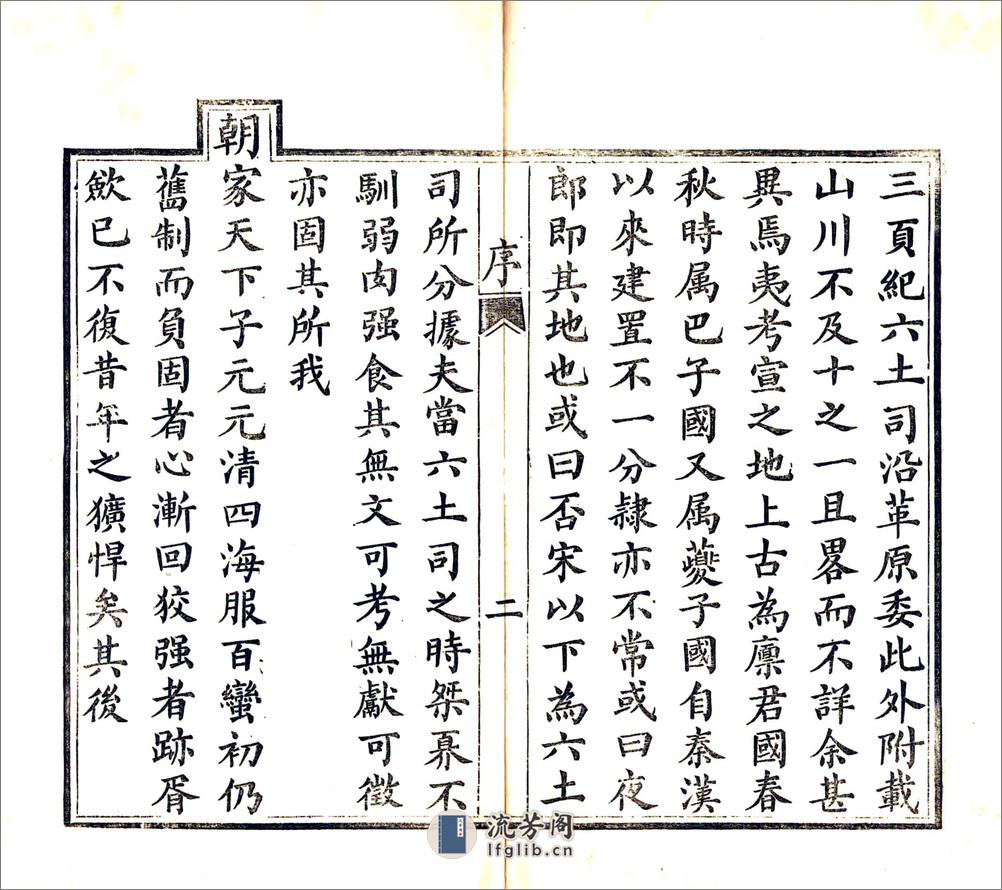 三頁紀六土司沿革原委此外附載
山川不及十之一且畧而不詳余甚
異焉夷考宣之地上古為廪君國春
秋時属巴子國又属夔子國自秦漢
以來建置不一分隸亦不常或曰夜
郎即其地也或曰否宋以下為六土
序
二
司所分據夫當六土司之時桀驁不
馴弱肉强食其無文可考無獻可徵
亦固其所我
朝家天下子元元清四海服百蠻初仍
舊制而負固者心漸回狡强者跡胥
歛已不復昔年之獷悍矣其後
流芳阁
lfglib.cn